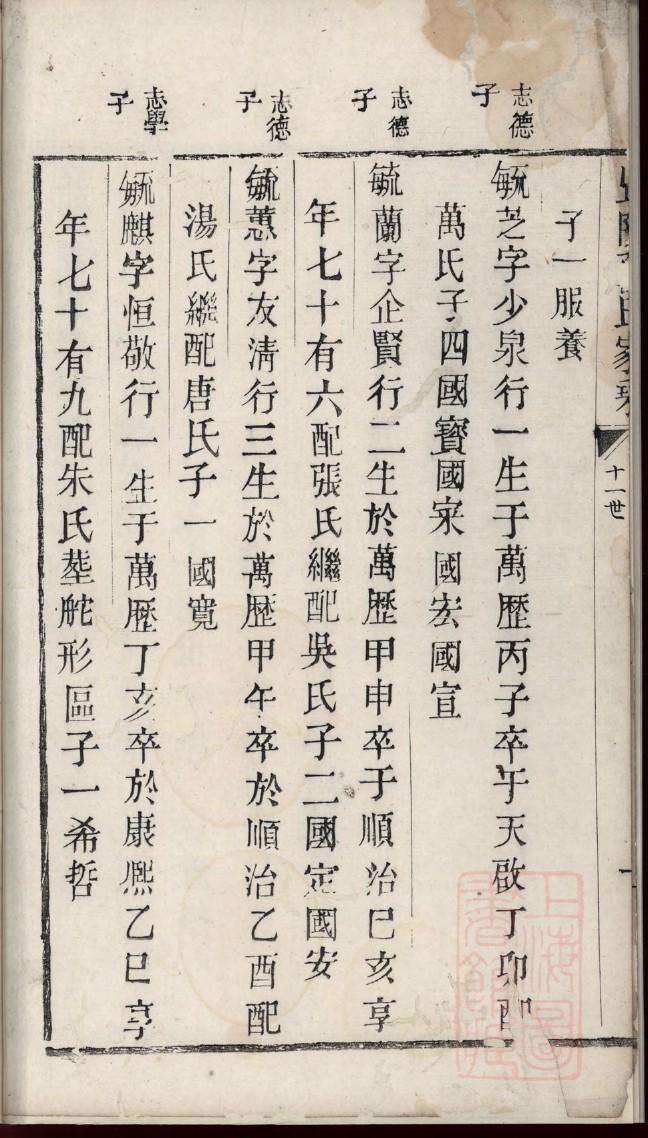 氏家乘
十一世
子一服養
志德
子
毓芝字少泉行一生于萬歷丙子卒于天啟丁卯配
萬氏子四國寳國宷國宏國宣
志德
子
毓蘭字企賢行二生於萬歷甲申卒于順治己亥享
年七十有六配張氏繼配吳氏子二國定國安
志德
子
毓蕙字友清行三生於萬歷甲午卒於順治乙酉配
湯氏繼配唐氏子一國寬
志學
子
毓麒字恒敬行一生于萬歷丁亥卒於康熈乙巳享
年七十有九配朱氏塟舵形區子一希哲
上海圖書館藏